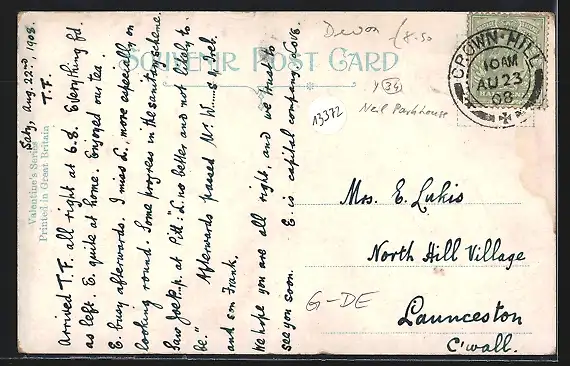 Saty, Aug. 22nd, 1908.
T.F.
Arrived T.F. all right at 6.8. Everything fd.
as left. E. quite at home. Enjoyed our tea.
E. busy afterwards. I miss L., more especially on
looking round. Some progress in the sanitary scheme.
Saw Joe P. jr. at Pill: "L. no better and not likely to
be." Afterwards passed Mr. W.....s, Isabel
and son Frank.
We hope you are all right, and we trust to
see you soon. E. is capital company. Love.
Valentine's Series
Printed in Great Britain
SOUVENIR POST CARD
Devon
£8.50
Y 34
Neil Parkhouse
13372
CROWN-HILL
10 AM
AU 23
08
Mrs. E. Lukis
North Hill Village
Launceston
C'wall.
G-DE